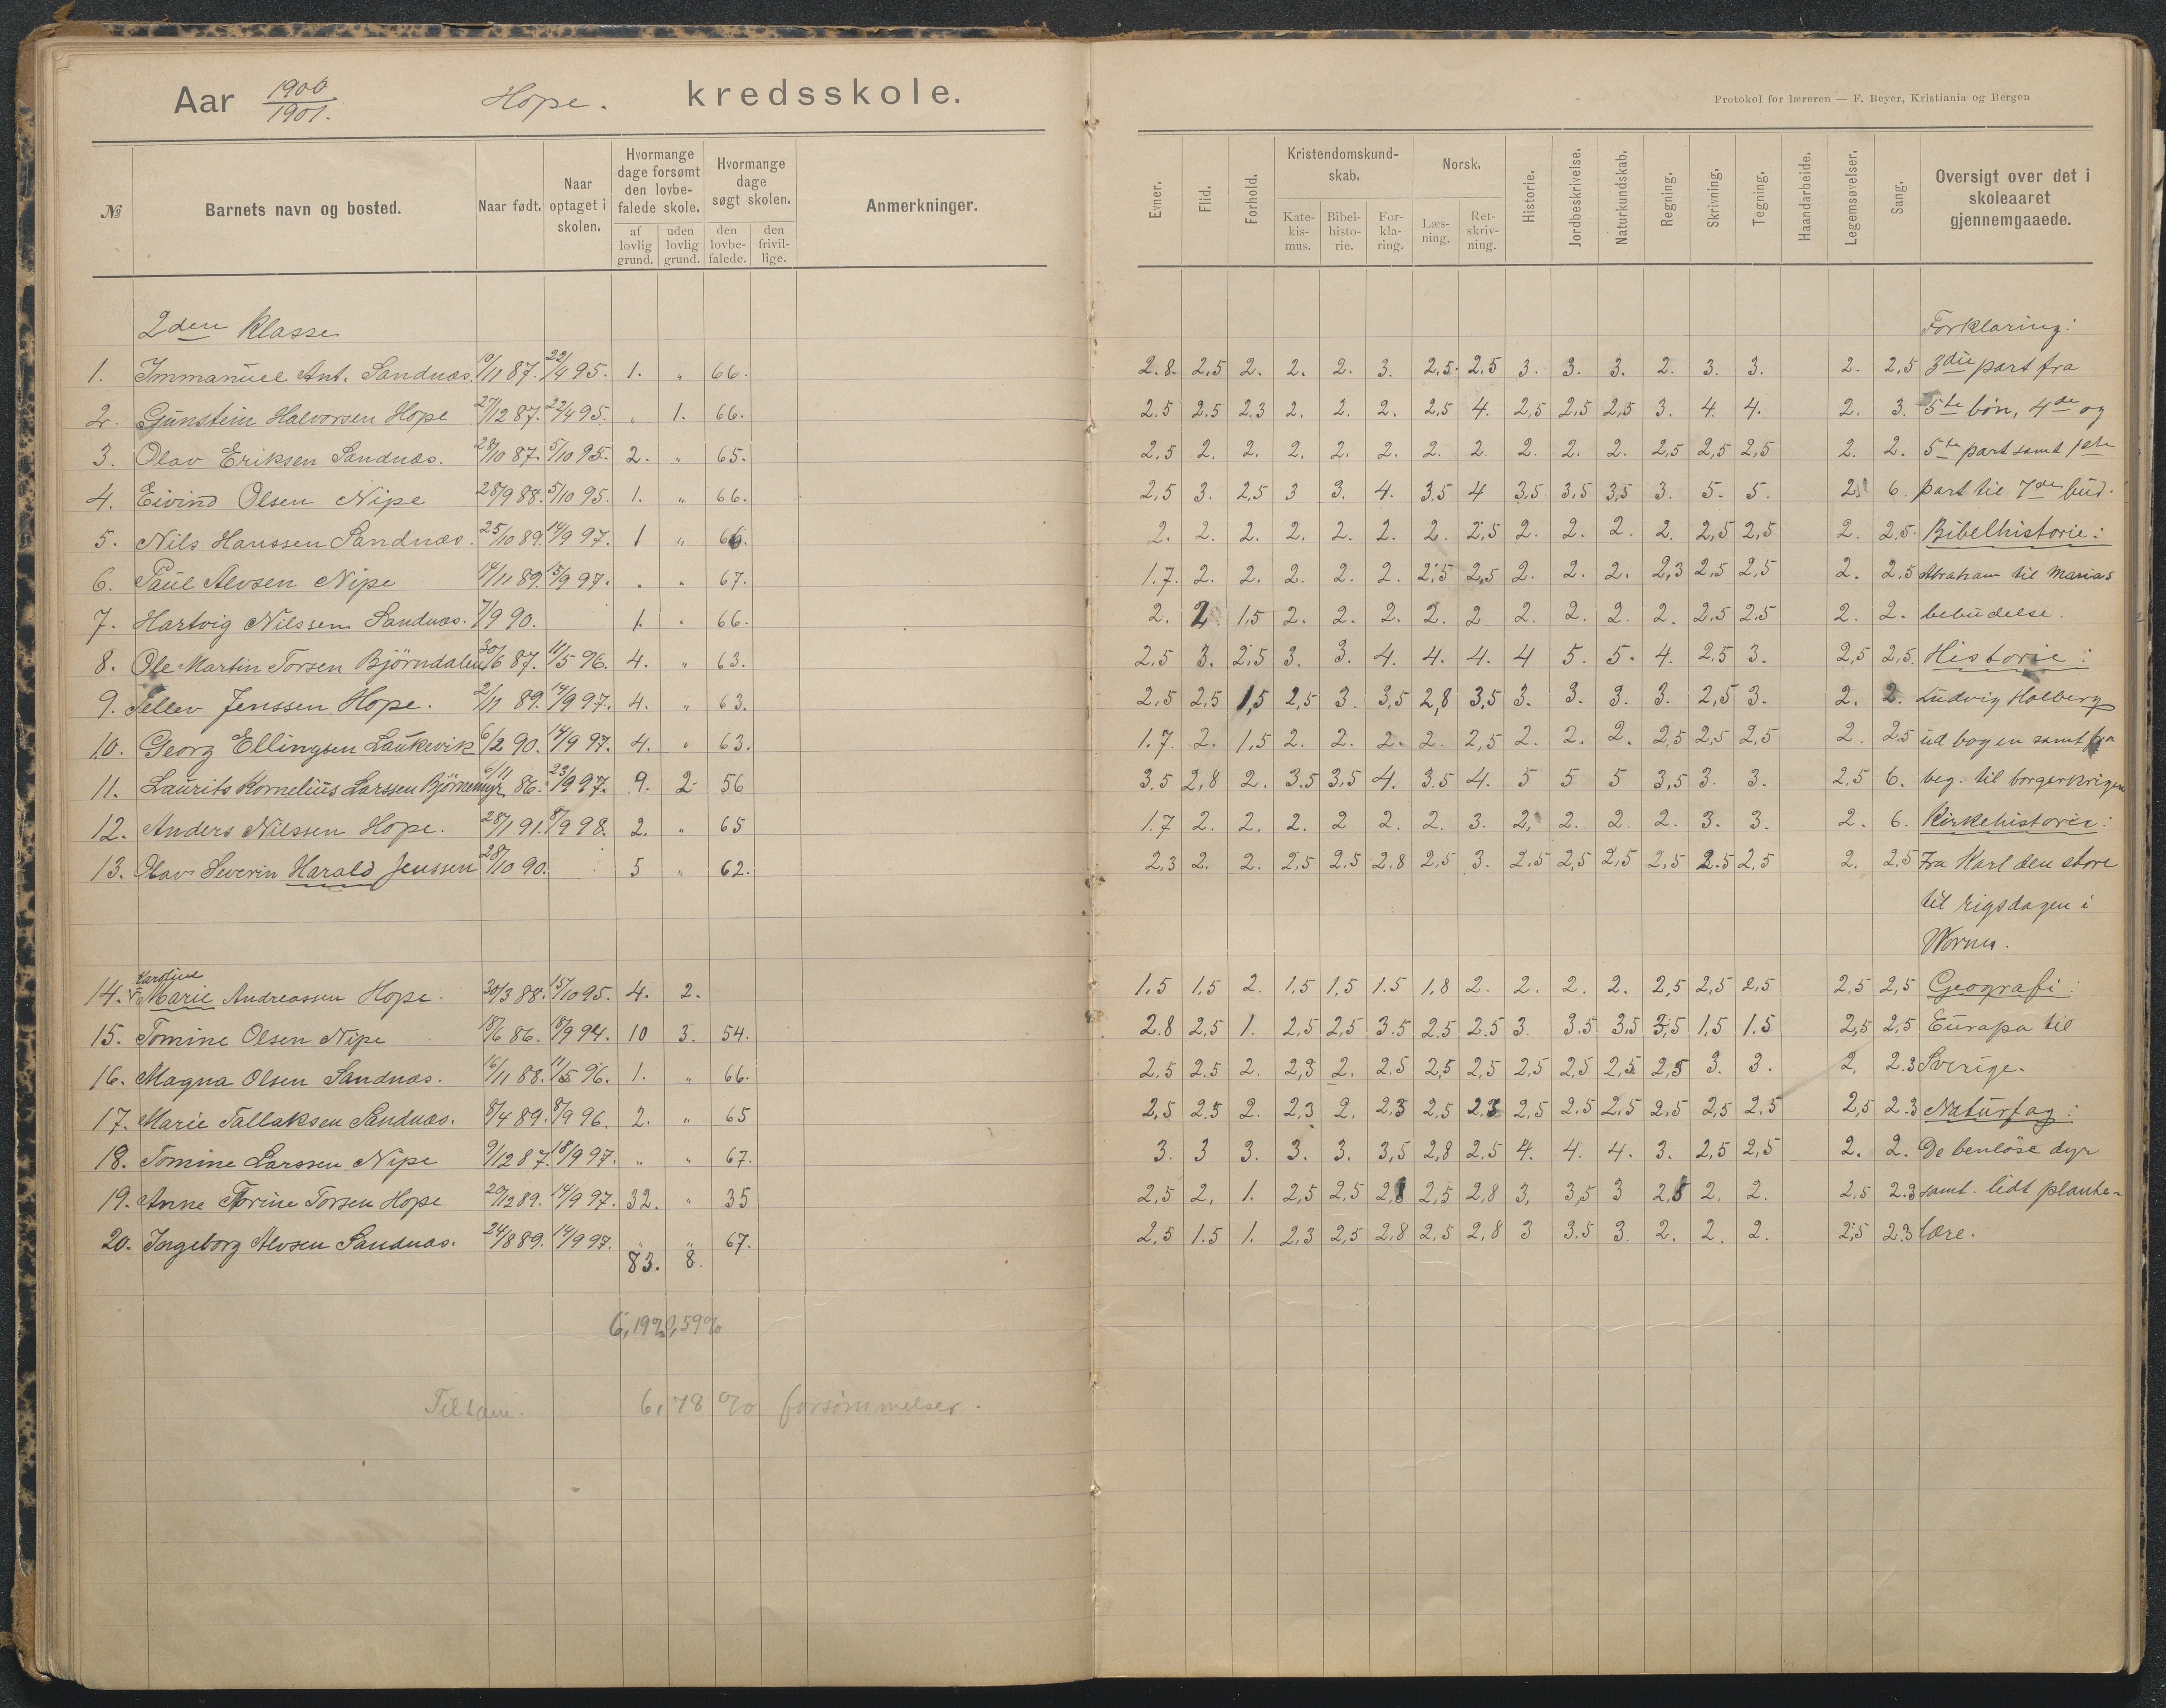 Aar 1900/1901. Hope. kredsskole.
Protokol for læreren — F. Beyer, Kristiania og Bergen
№ Barnets navn og bosted. Naar født. Naar optaget i skolen. Hvormange dage forsømt den lovbefalede skole. af lovlig grund. uden lovlig grund. Hvormange dage søgt skolen. den lovbefalede. den frivillige. Anmerkninger. Evner. Flid. Forhold. Kristendomskundskab. Katekismus. Bibelhistorie. Forklaring. Norsk. Læsning. Retskrivning. Historie. Jordbeskrivelse. Naturkundskab. Regning. Skrivning. Tegning. Haandarbeide. Legemsøvelser. Sang. Oversigt over det i skoleaaret gjennemgaaede.
2den Klasse Forklaring:
1. Immanuel Ant. Sandnæs. 9/11 87. 22/4 95. 1. " 66. 2.8. 2,5 2. 2. 2. 3. 2,5. 2.5 3. 3. 3. 2. 3. 3. 2. 2,5 3die part fra
2. Gunstein Halvorsen Hope 27/12 87. 22/4 95. " 1. 66. 2.5 2.5 2,3 2. 2. 2. 2,5 4. 2,5 2,5 2,5 3. 4. 4. 2. 3. 5te bøn, 4de og
3. Olav Eriksen Sandnæs. 28/10 87. 5/10 95. 2. " 65. 2,5 2. 2. 2. 2. 2. 2. 2. 2. 2. 2. 2,5 2,5 2,5 2. 2. 5te part samt 1ste
4. Eivind Olsen Nipe 28/9 88. 5/10 95. 1. " 66. 2,5 3. 2,5 3 3. 4. 3,5 4 3,5 3,5 3,5 3. 5. 5. 2. 6. part til 7de bud.
5. Nils Hanssen Sandnæs. 25/10 89. 14/9 97. 1 " 66. 2. 2. 2. 2. 2. 2. 2. 2,5 2. 2. 2. 2. 2,5 2,5 2. 2,5. Bibelhistorie:
6. Paul Alvsen Nipe 14/11 89. 15/9 97. " " 67. 1.7. 2. 2. 2. 2. 2. 2,5 2,5 2. 2. 2. 2,3 2,5 2,5 2. 2,5 Abraham til Marias
7. Hartvig Nilssen Sandnæs. 7/9 90. 1. " 66. 2. 2 1,5 2. 2. 2. 2. 2 2. 2. 2. 2. 2,5 2.5 2. 2. bebudelse.
8. Ole Martin Torsen Björndalen 30/6 87. 11/5 96. 4. " 63. 2,5 3. 2,5 3. 3. 4. 4. 4. 4 5. 5. 4. 2,5 3. 2,5 2,5. Historie:
9. Tellev Jenssen Hope. 2/11 89. 14/9 97. 4. " 63. 2,5 2,5 1,5 2,5 3. 3,5 2,8 3,5 3. 3. 3. 3. 2,5 3. 2. 2. Ludvig Holberg
10. Georg Ellingsen Laukevik 6/2 90. 14/9 97. 4. " 63. 1.7. 2. 1,5 2. 2. 2. 2. 2,5 2. 2. 2. 2,5 2,5 2,5 2. 2,5 ud bogen samt fra
11. Laurits Kornelius Larssen Björnemyr 6/11 86. 23/9 97. 9. 2 56 3,5 2,8 2. 3.5 3,5 4. 3.5 4. 5 5 5 3,5 3. 3. 2,5 6. beg. til borgerkrigene
12. Anders Nilssen Hope. 28/1 91. 8/9 98. 2. " 65 1.7 2. 2. 2. 2 2. 2. 3. 2, 2. 2. 2. 3. 3. 2. 6. Kirkehistorie:
13. Olav Severin Harald Jenssen 28/10 90. 5 " 62. 2,3 2. 2. 2,5 2,5 2.8 2,5 3. 2,5 2,5 2,5 2,5 2.5 2,5 2. 2.5 Fra Karl den store
til rigsdagen i
Worms.
14. Karoline Marie Andreassen Hope. 30/3 88. 15/10 95. 4. 2. 1.5 1,5 2. 1,5 1,5 1.5 1,8 2. 2. 2. 2. 2,5 2,5 2,5 2,5 2,5 Geografi:
15. Tomine Olsen Nipe 18/6 86. 18/9 94. 10 3. 54. 2.8 2,5 1. 2,5 2,5 3.5 2.5 2.5 3. 3.5 3,5 3,5 1,5 1.5 2,5 2,5 Europa til
16. Magna Olsen Sandnæs. 16/11 88. 11/5 96. 1. " 66. 2.5 2.5 2. 2,3 2. 2.5 2,5 2,5 2,5 2,5 2,5 2,5 3. 3. 2. 2.3 Sverige.
17. Marie Tallaksen Sandnæs. 8/4 89. 8/9 96. 2. " 65 2,5 2,5 2. 2,3 2. 2,3 2,5 2,3 2,5 2.5 2,5 2,5 2,5 2.5 2,5 2.3 Naturfag:
18. Tomine Larssen Nipe 9/12 87. 18/9 97. " " 67. 3. 3 3. 3. 3. 3,5 2,8 2.5 4. 4. 4. 3. 2,5 2,5 2. 2. De benløse dyr
19. Anne Torine Torsen Hope 20/12 89. 14/9 97. 32. " 35 2,5 2, 1. 2,5 2,5 2,8 2,5 2,8 3, 3,5 3 2,5 2. 2. 2.5 2.3 samt lidt plante-
20. Ingeborg Alvsen Sandnæs. 24/8 89. 14/9 97. " " 67. 2,5 1.5 1. 2,3 2,5 2,8 2,5 2,8 3 3.5 3. 2. 2. 2. 2,5 2.3 lære.
83. 8.
6,19% 0,59%
Tilsam. 6,78 % forsömmelser.